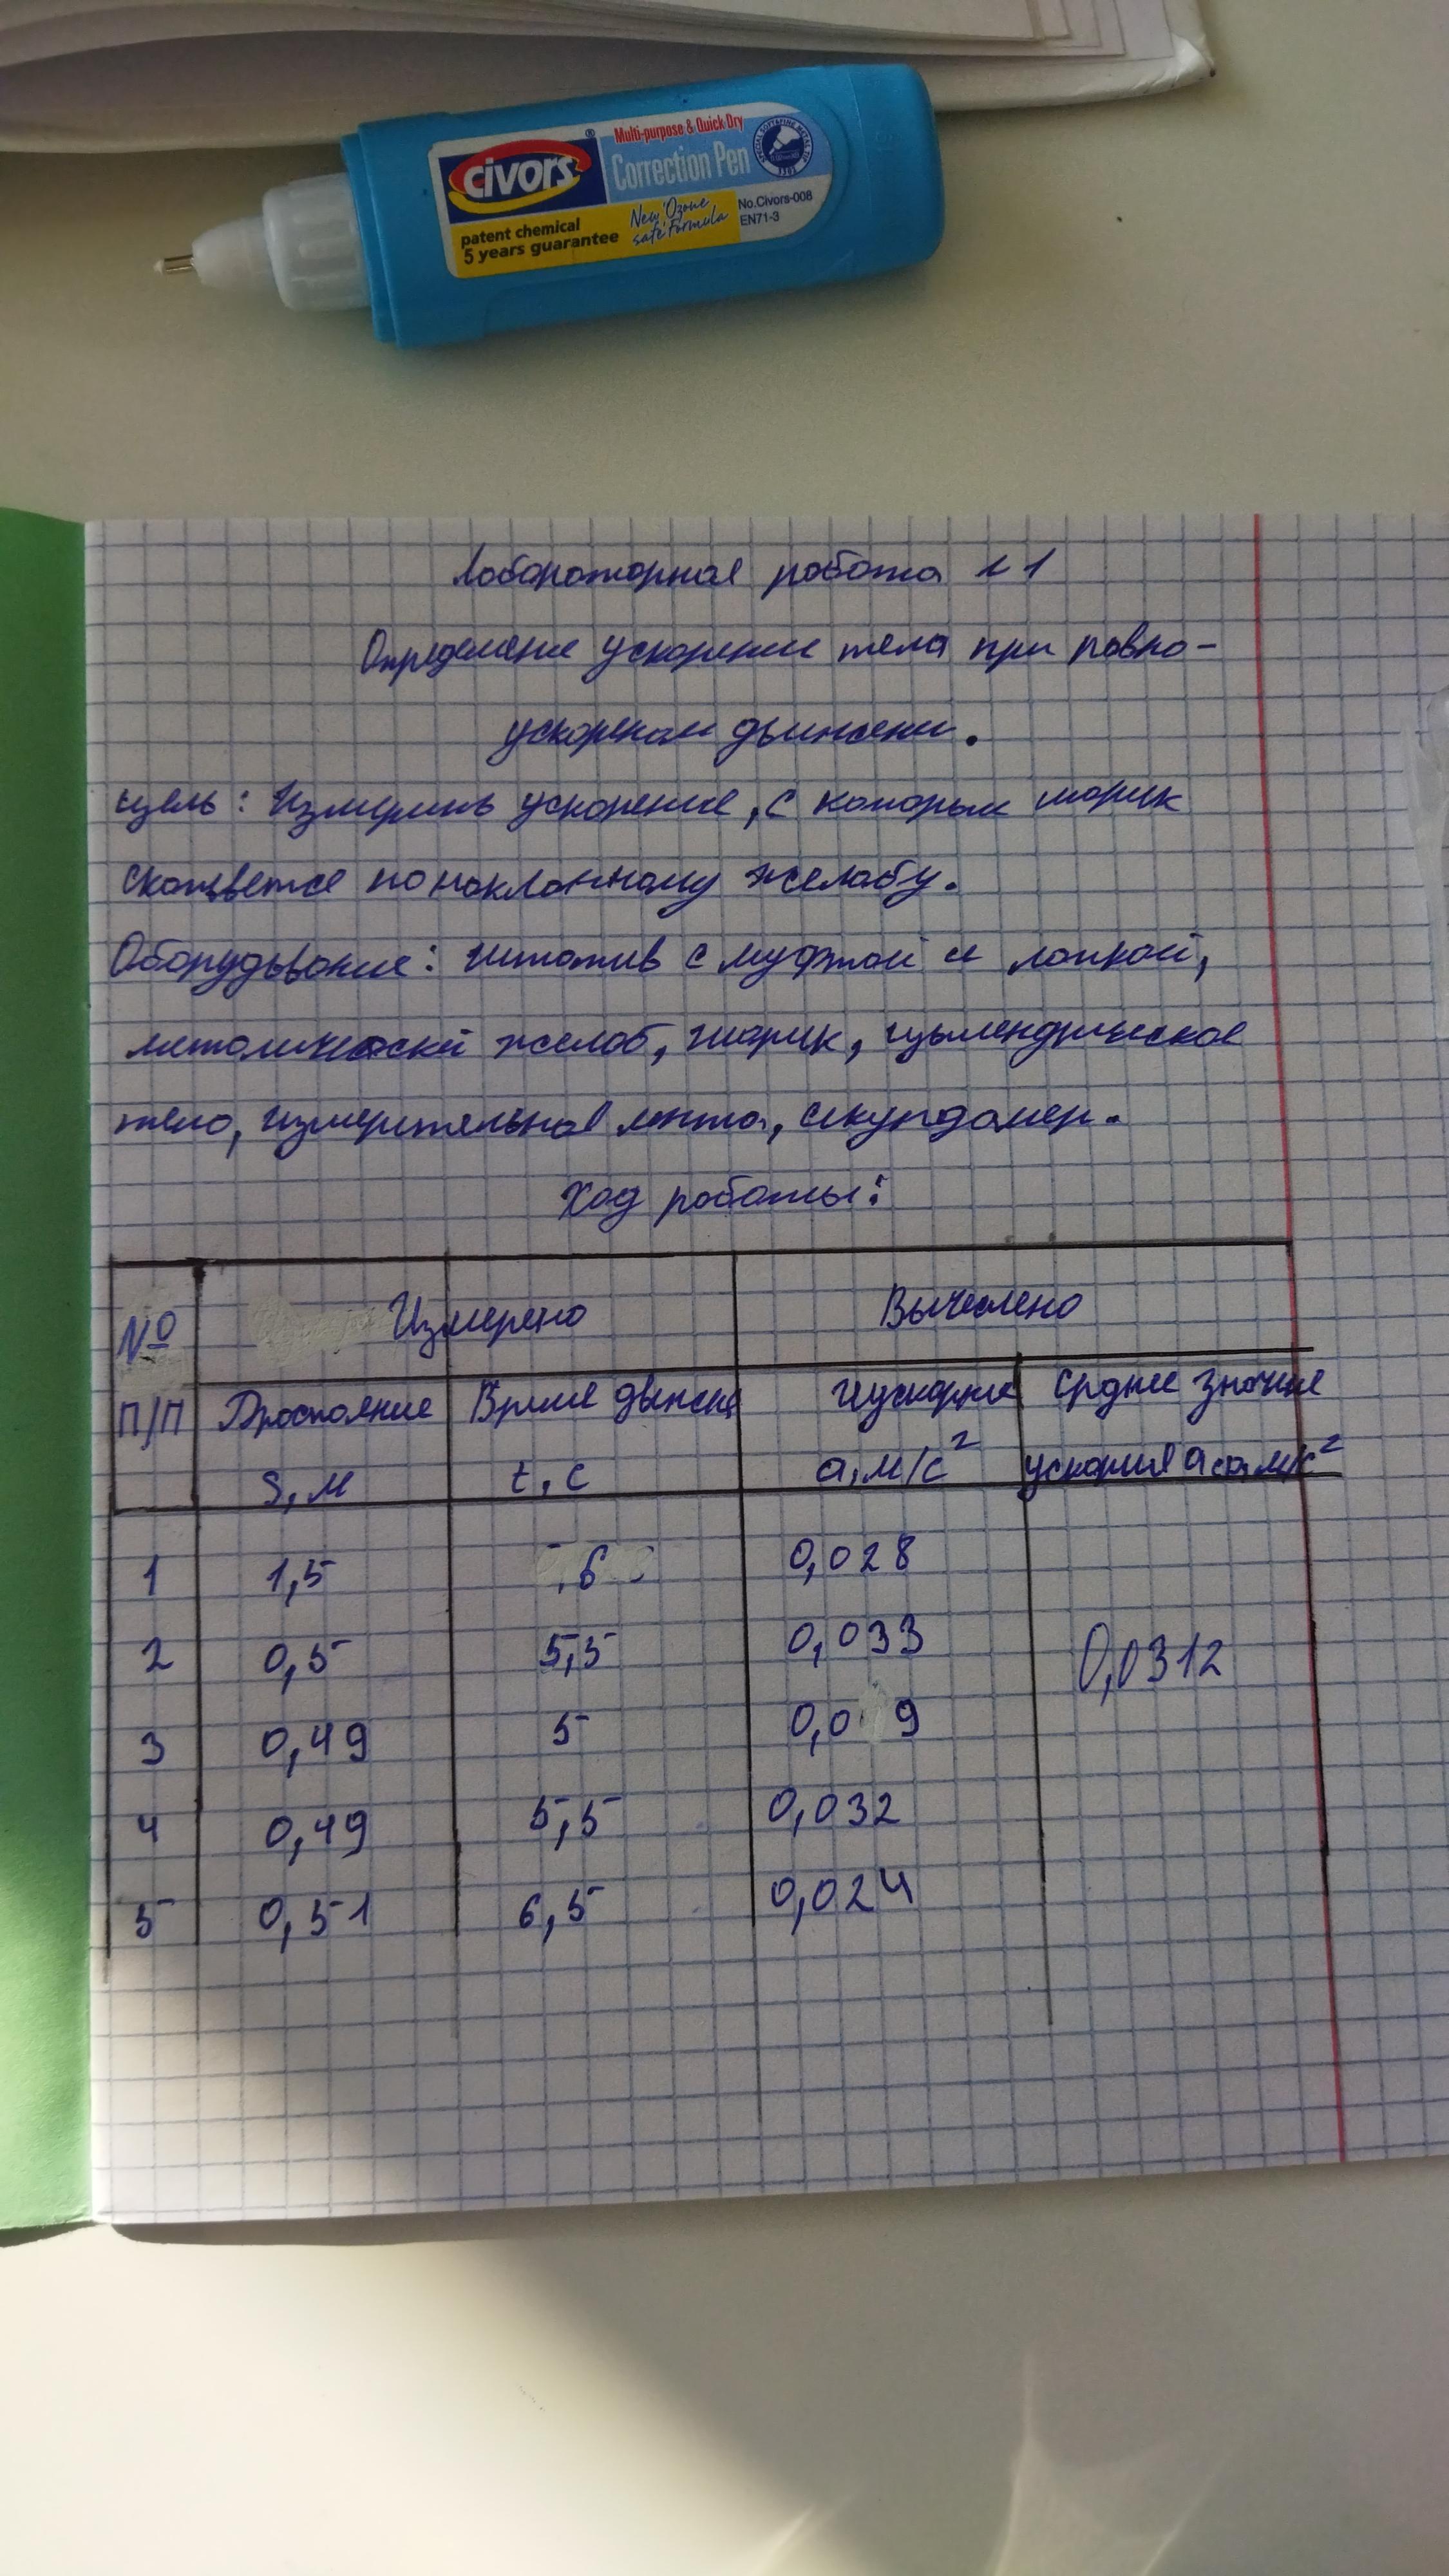 Multi-purpose & Quick Dry
civors®
Correction Pen
patent chemical
5 years guarantee
New Ozone
safe Formula
No.Civors-008
EN71-3
Лабораторная работа №1
Определение ускорение тела при равно-
ускореном движени.
Цель: Измерить ускорение, с которым шарик
скатывется по наклонному желобу.
Оборудование: штатив с муфтой и лапкой,
металический желоб, шарик, цылендрическое
тело, измерительная лента, секундомер.
Ход работы:
№ Измерено Вычеслено
П/П Время Средне значние
S, м t, с a, м/с² ускория aср, м/с²
1 1,5 ,6 0,028
2 0,5 5,5 0,033 0,0312
3 0,49 5 0,0 9
4 0,49 5,5 0,032
5 0,51 6,5 0,024